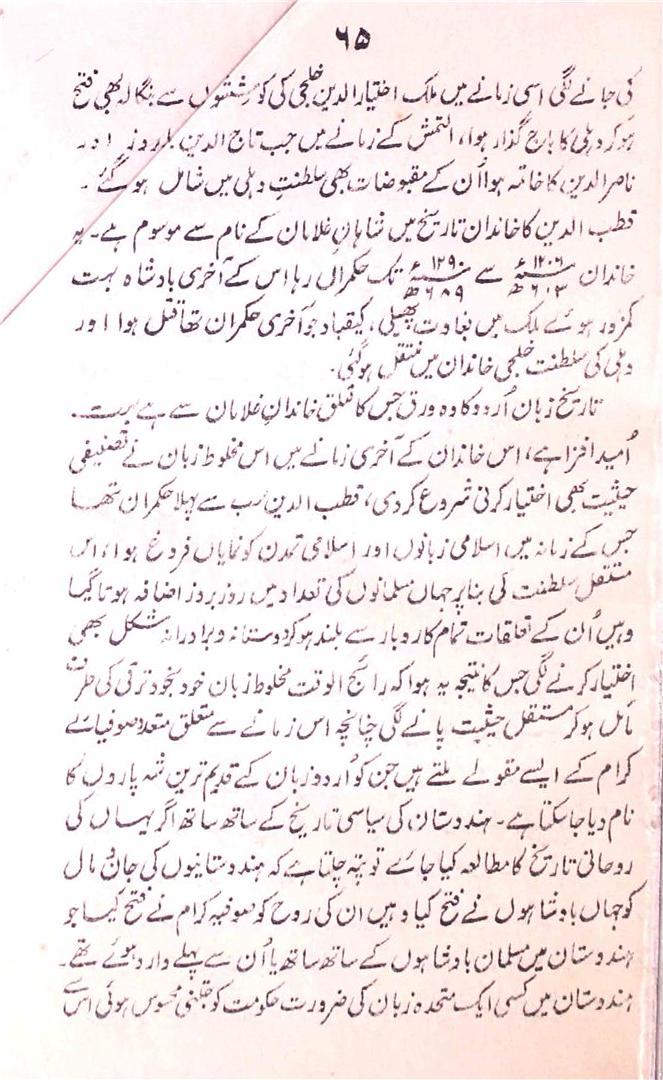 ۶۵
کی جانے لگی اسی زمانے میں ملک اختیار الدین خلجی کی کوششوں سے بنگالہ بھی فتح
ہو کر دہلی کا باج گذار ہوا، التمش کے زمانے میں جب تاج الدین یلدوز اور
ناصر الدین کا خاتمہ ہوا اُن کے مقبوضات بھی سلطنتِ دہلی میں شامل ہو گئے ۔
قطب الدین کا خاندان تاریخ میں شاہانِ غلامان کے نام سے موسوم ہے۔ یہ
خاندان ۱۲۰۶ء ۶۰۳ھ سے ۱۲۹۰ء ۶۸۹ھ تک حکمراں رہا اس کے آخری بادشاہ بہت
کمزور ہوئے ملک میں بغاوت پھیلی، کیقباد جو آخری حکمران تھا قتل ہوا اور
دہلی کی سلطنت خلجی خاندان میں منتقل ہو گئی۔
تاریخ زبان اُردو کا وہ ورق جس کا تعلق خاندانِ غلامان سے ہے بہت
اُمید افزا ہے، اس خاندان کے آخری زمانے میں اس مخلوط زبان نے تصنیفی
حیثیت بھی اختیار کرنی شروع کر دی، قطب الدین سب سے پہلا حکمران تھا
جس کے زمانہ میں اسلامی زبانوں اور اسلامی تمدن کو نمایاں فروغ ہوا، اس
مستقل سلطنت کی بنا پر جہاں مسلمانوں کی تعداد میں روز بروز اضافہ ہوتا گیا
وہیں اُن کے تعلقات تمام کاروبار سے بلند ہو کر دوستانہ و برادرانہ شکل بھی
اختیار کرنے لگی جس کا نتیجہ یہ ہوا کہ رائج الوقت مخلوط زبان خود بخود ترقی کی طرف
مائل ہو کر مستقل حیثیت پانے لگی چنانچہ اس زمانے سے متعلق متعدد صوفیائے
کرام کے ایسے مقولے ملتے ہیں جن کو اُردو زبان کے قدیم ترین شہ پاروں کا
نام دیا جا سکتا ہے۔ ہندوستان کی سیاسی تاریخ کے ساتھ ساتھ اگر یہاں کی
روحانی تاریخ کا مطالعہ کیا جائے تو پتہ چلتا ہے کہ ہندوستانیوں کی جان و مال
کو جہاں بادشاہوں نے فتح کیا وہیں ان کی روح کو صوفیہ کرام نے فتح کیا جو
ہندوستان میں مسلمان بادشاہوں کے ساتھ ساتھ یا اُن سے پہلے وارد ہوئے تھے۔
ہندوستان میں کسی ایک متحدہ زبان کی ضرورت حکومت کو جتنی محسوس ہوئی اس سے